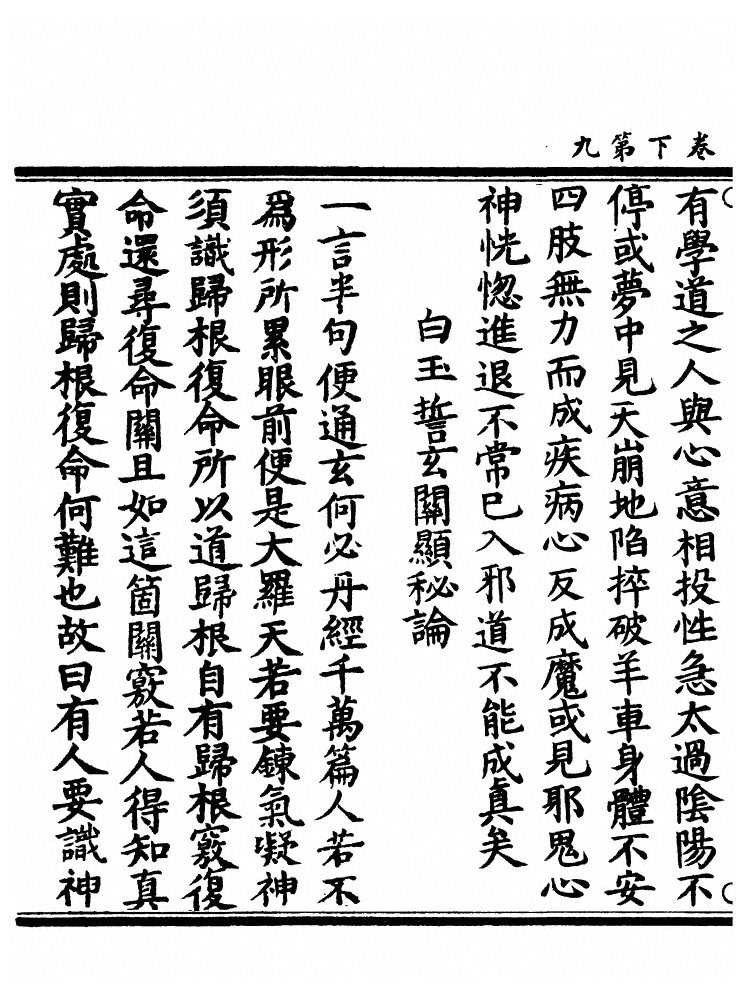 卷下第九
有學道之人與心意相投性急太過陰陽不
停或夢中見天崩地陷摔破羊車身體不安
四肢無力而成疾病心反成魔或見耶鬼心
神恍惚進退不常已入邪道不能成真矣
白玉誓玄關顯秘論
一言半句便通玄何必丹經千萬篇人若不
爲形所累眼前便是大羅天若要鍊氣凝神
須識歸根復命所以道歸根自有歸根竅復
命還尋復命關且如這箇關竅若人得知真
實處則歸根復命何難也故曰有人要識神